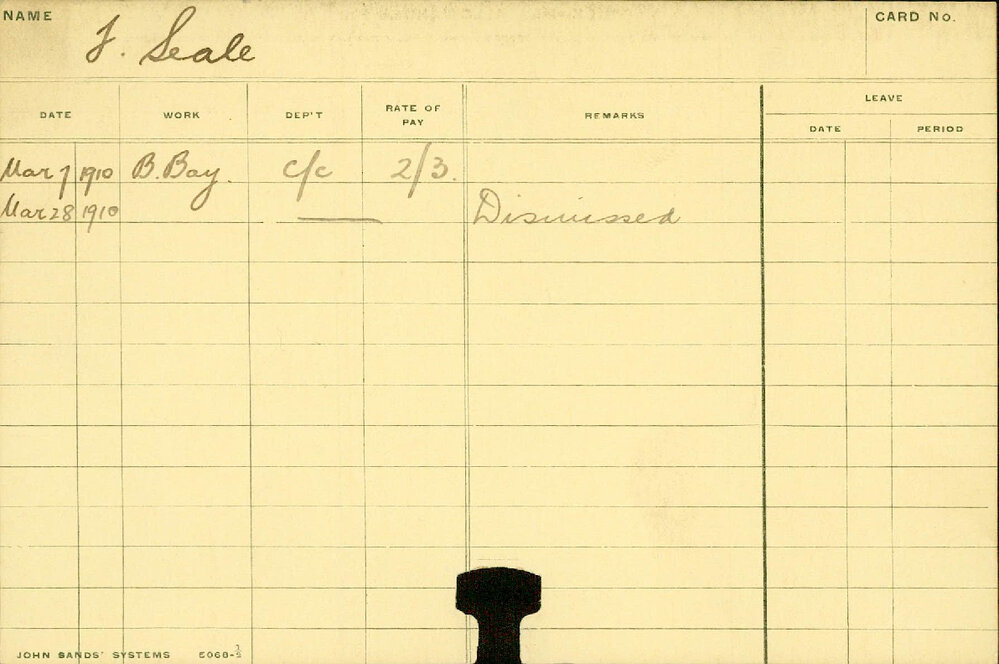 NAME
F. Seale
CARD No.
DATE WORK DEP'T RATE OF PAY REMARKS LEAVE
DATE PERIOD
Mar 7 1910 B. Bay. c/c 2/3.
Mar 28 1910 Dismissed
JOHN SANDS' SYSTEMS 5068-½